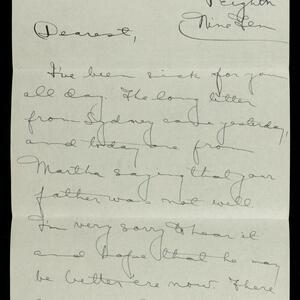 Eighth
Nine Ten
Dearest,
I've been sick for you
all day. The long letter
from Sydney came yesterday,
and today one from
Martha saying that your
father was not well
I'm very sorry to hear it
and hope that he may
be better ere now. There